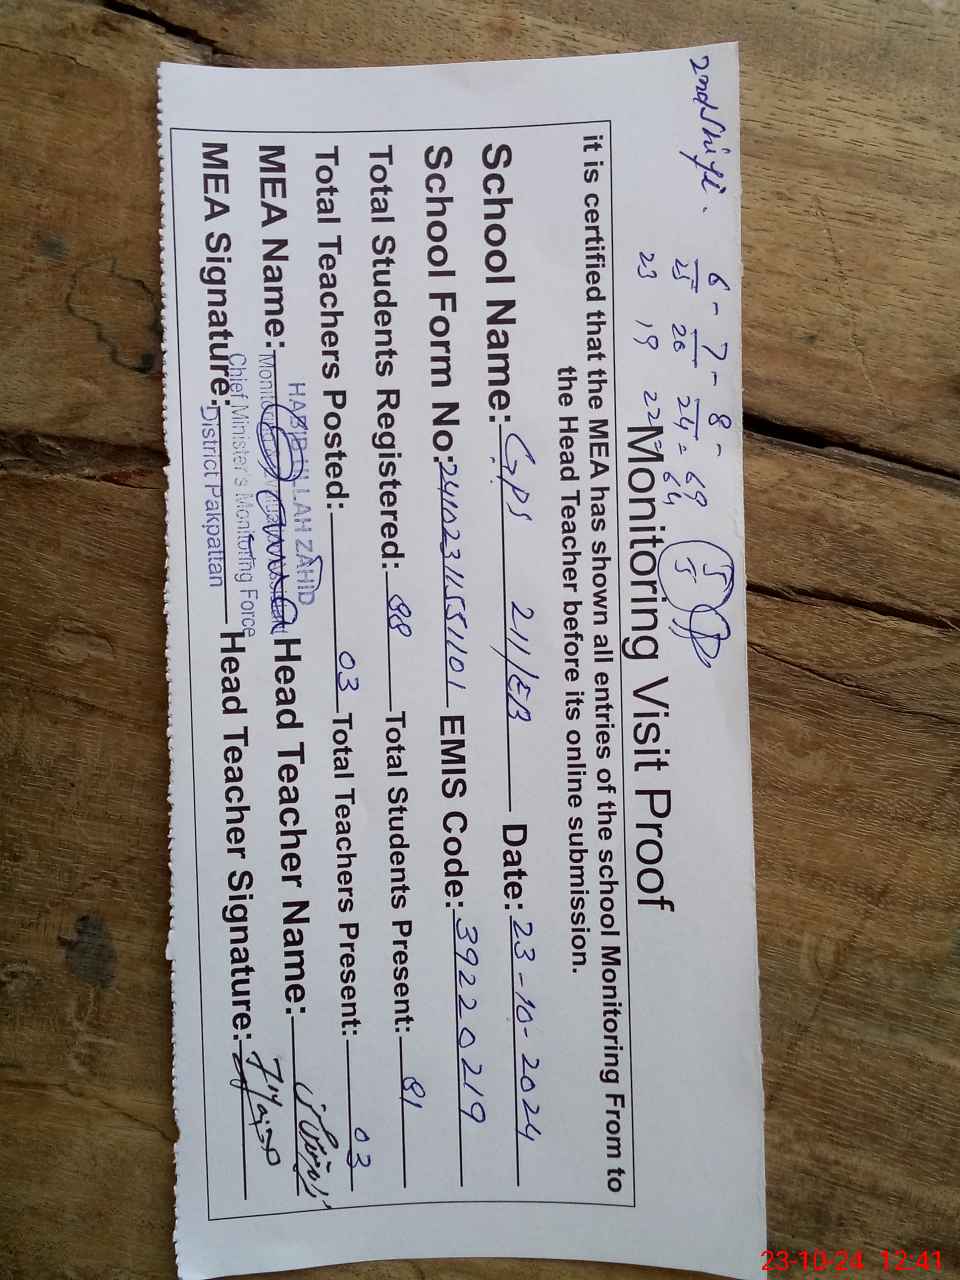 2nd Shift.
6 - 7 - 8 -
25 20 24 = 69
23 19 22 64
Monitoring Visit Proof
it is certified that the MEA has shown all entries of the school Monitoring From to
the Head Teacher before its online submission.
School Name: GPS 21/EB Date: 23-10-2024
School Form No: EMIS Code: 39220219
Total Students Registered: 88 Total Students Present: 81
Total Teachers Posted: 03 Total Teachers Present: 03
HABIB ULLAH ZAHID
MEA Name: Head Teacher Name:
Chief Minister's Monitoring Force
MEA Signature: District Pakpattan Head Teacher Signature:
23-10-24 12:41